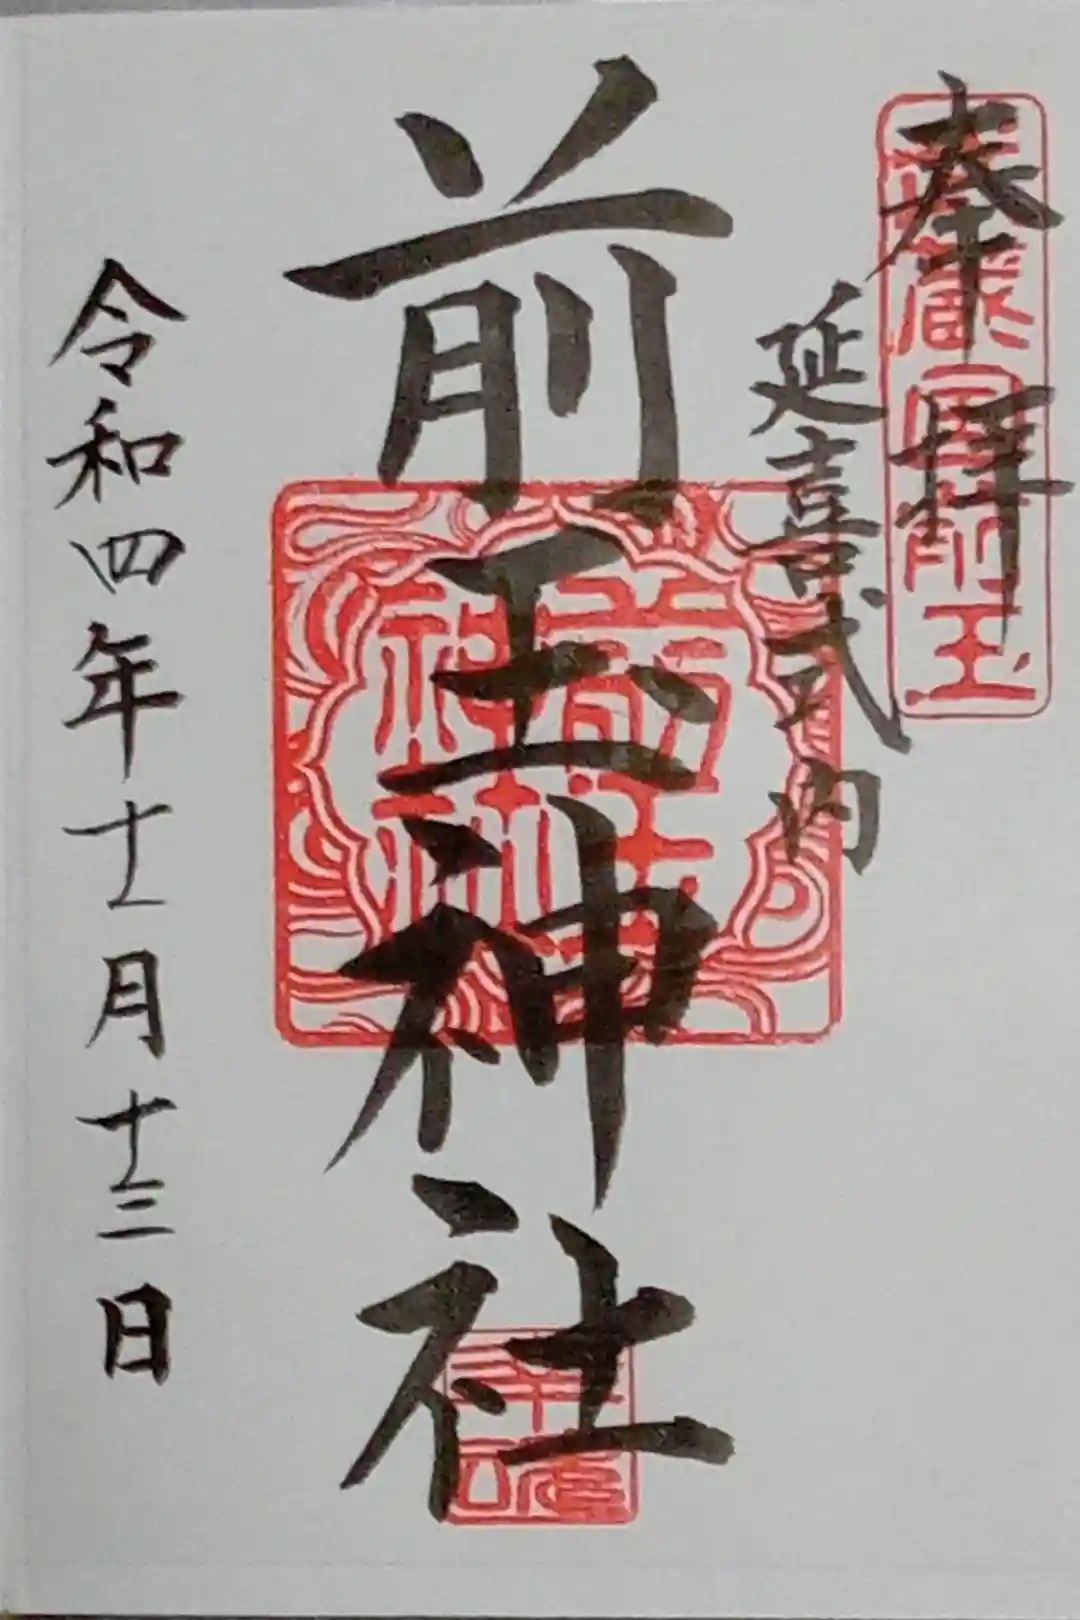 奉拝
武蔵国前玉
延喜式内
前玉神社
前玉
神社
令和四年十一月十三日